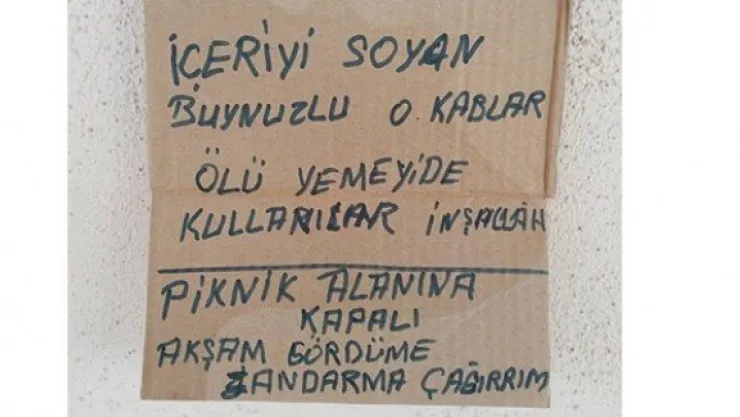 İÇERİYİ SOYAN
BUYNUZLU O KABLAR
ÖLÜ YEMEYİDE
KULLANILAR İNŞALLAH
PİKNİK ALANINA
KAPALI
AKŞAM GÖRDÜME
JANDARMA ÇAĞIRRIM